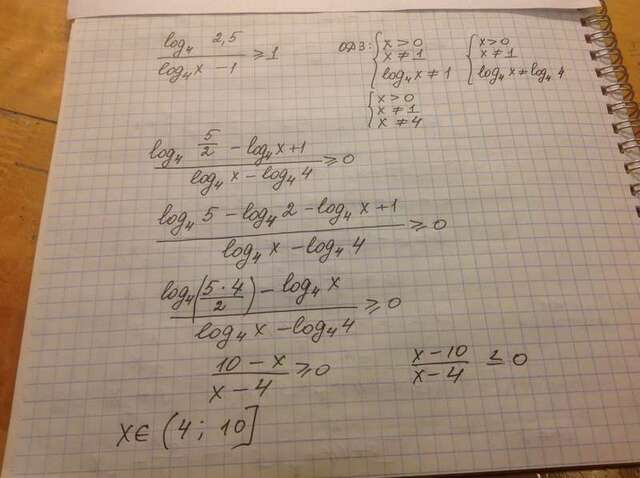 log₄ 2,5 / (log₄x − 1) ≥ 1
ОДЗ: { x > 0
x ≠ 1
log₄x ≠ 1
{ x > 0
x ≠ 1
log₄x ≠ log₄4
{ x > 0
x ≠ 1
x ≠ 4
(log₄ 5/2 − log₄x + 1) / (log₄x − log₄4) ≥ 0
(log₄5 − log₄2 − log₄x + 1) / (log₄x − log₄4) ≥ 0
(log₄(5·4/2) − log₄x) / (log₄x − log₄4) ≥ 0
(10 − x) / (x − 4) ≥ 0
(x − 10) / (x − 4) ≤ 0
x ∈ (4; 10]